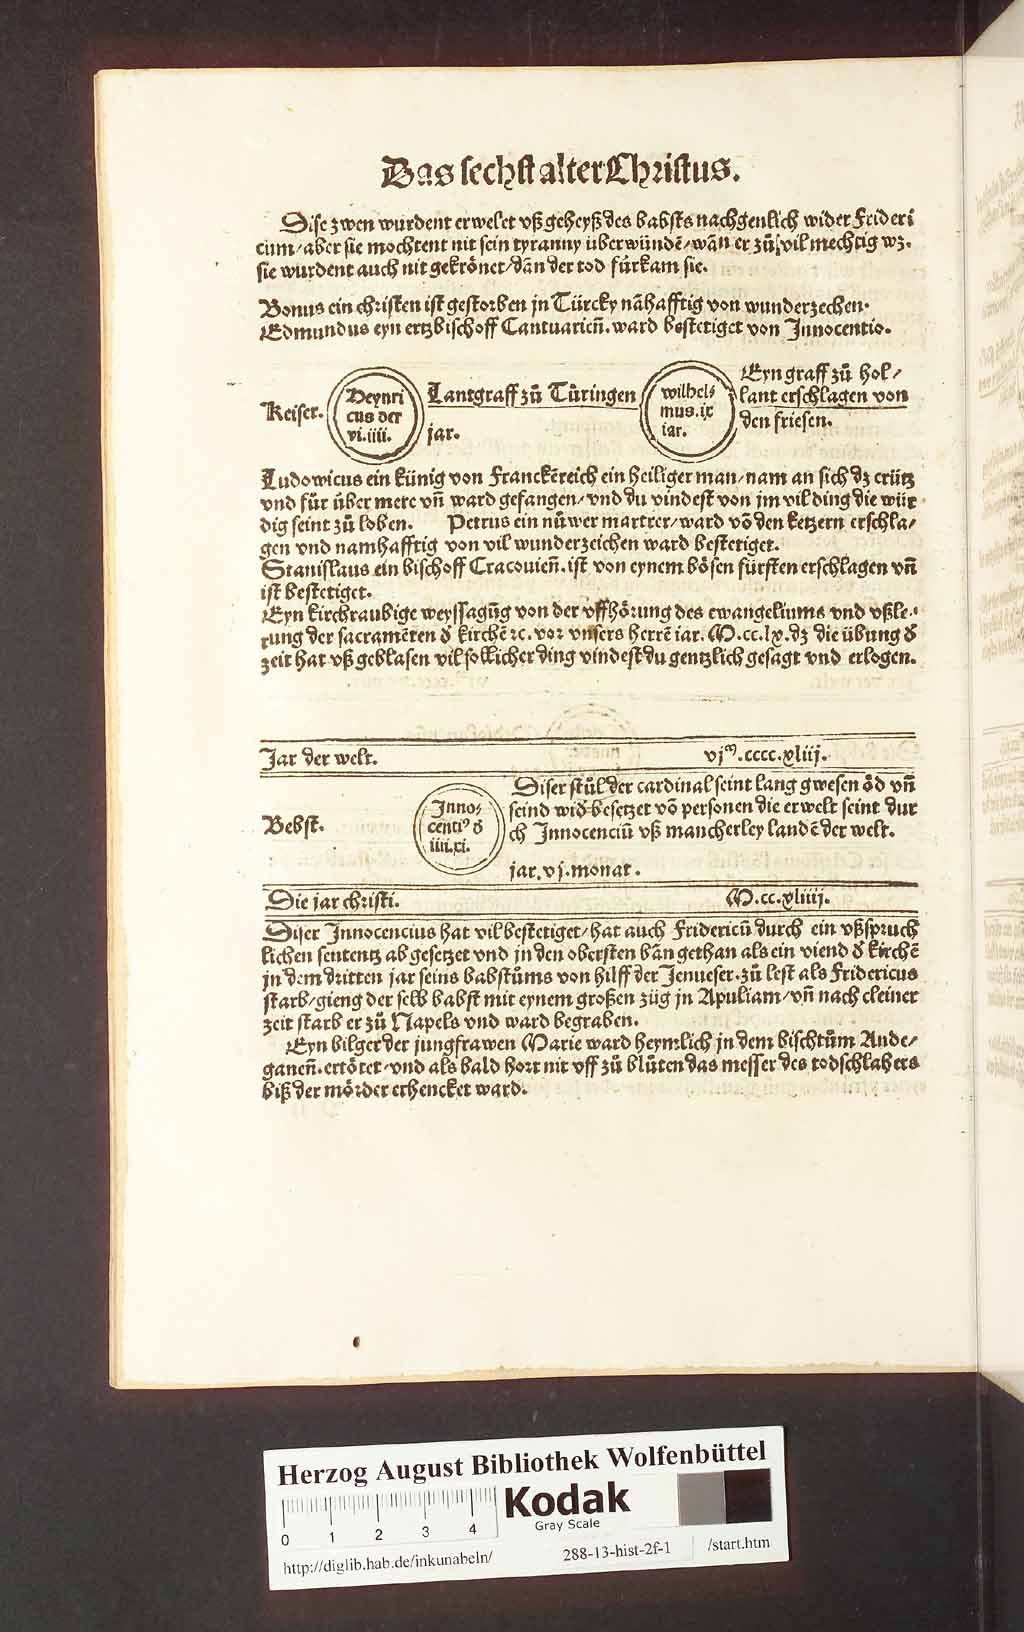 Das sechst alter Christus.
Dise zwen wurdent erwelet vß geheyß des babsts nachgenlich wider Frideri
cum/aber sie mochtent nit sein tyranny überwündē/wān er zů vil mechtig wz.
sie wurdent auch nit gekrönet/dān der tod fürkam sie.
Bonus ein christen ist gestorben jn Türcky nāhafftig von wunderzechen.
Edmundus eyn ertzbischoff Cantuarień. ward bestetiget von Innocentio.
Keiser.
Heynri
cus der
vi.iiii.
Lantgraff zů Türingen
jar.
wilhel⸗
mus.ix
iar.
Eyn graff zů hol/
lant erschlagen von
den friesen.
Ludowicus ein künig von Franckēreich ein heiliger man/nam an sich dz crütz
vnd für über mere vn̄ ward gefangen/vnd du vindest von jm vil ding die wür
dig seint zů loben. Petrus ein nüwer martrer/ward vō den ketzern erschla/
gen vnd namhafftig von vil wunderzeichen ward bestetiget.
Stanislaus ein bischoff Cracouień. ist von eynem bösen fürsten erschlagen vn̄
ist bestetiget.
Eyn kirchraubige weyssagūg von der vffhörung des ewangeliums vnd vßle⸗
rung der sacramēten d̕ kirchē ꝛc. vor vnsers herrē iar. M.cc.lv. dz die übung d̕
zeit hat vß geblasen vil sollicher ding vindest du gentzlich gesagt vnd erlogen.
Jar der welt. vjᵐ.cccc.xliij.
Bebst.
Inno⸗
centiꝰ d̕
iiii.xi.
Diser stůl der cardinal seint lang gwesen ōd vn̄
seind wid̕ besetzet vō personen die erwelt seint dur
ch Innocenciū vß mancherley landē der welt.
jar. vj. monat.
Die jar christi. M.cc.xliiij.
Diser Innocencius hat vil bestetiget/hat auch Fridericū durch ein vßspruch
lichen sententz abgesetzet vnd jn den obersten bān gethan als ein viend d̕ kirchē
jn dem dritten jar seins babstůms von hilff der Jenueser. zů lest als Fridericus
starb/gieng der selb babst mit eynem großen züg jn Apuliam/vn̄ nach cleiner
zeit starb er zů Napels vnd ward begraben.
Eyn bilger der jungfrawen Marie ward heymlich jn dem bischtům Ande/
ganeń. ertötet/vnd als bald hort nit vff zů blůten das messer des todschlahers
biß der mörder erhencket ward.
Herzog August Bibliothek Wolfenbüttel
0 1 2 3 4
Kodak
Gray Scale
http://diglib.hab.de/inkunabeln/ 288-13-hist-2f-1 /start.htm